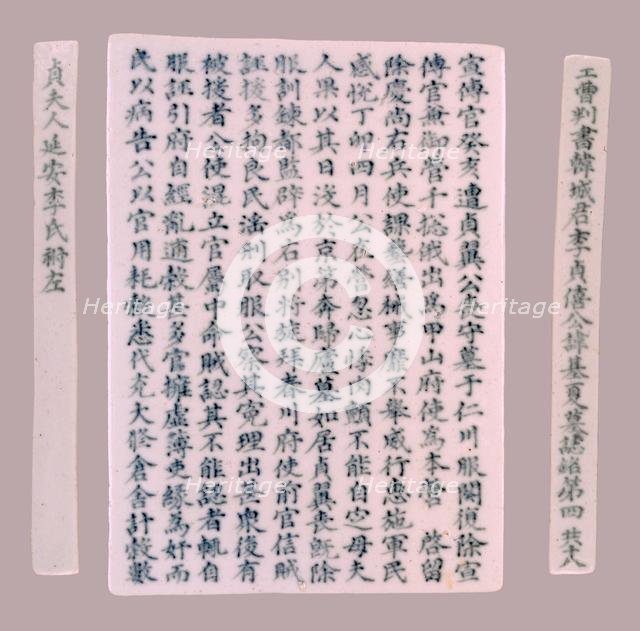 工曹判書韓城君李貞僖公諱基夏墓誌銘第四 共十八
宣傳官癸亥遭貞翼公守墓于仁川服闋復除宣
傳官兼 官千総俄出爲 山府使爲本 啓留
除慶尚右兵使課 繕械事靡 舉威行惠施軍民
感悦丁卯四月公在營忽心悸内顫不能自定母夫
人果以其日沒於京第奔歸廬墓如居貞翼喪既除
服訓鍊都監辟爲右别將旋拜春川府使前官信賊
誣援多拘良民 刑取服公察其冤理出 衆後有
被援者公使混立官屬中命賊認其不能 者輒自
服誣引府自經亂逋穀 多官擁虚簿吏縁爲奸而
民以病告公以官用耗 悉代充大修倉舍計穀數
貞夫人延安李氏祔左
Heritage
Heritage
Heritage
Heritage
Heritage
Heritage
Heritage
Heritage
©